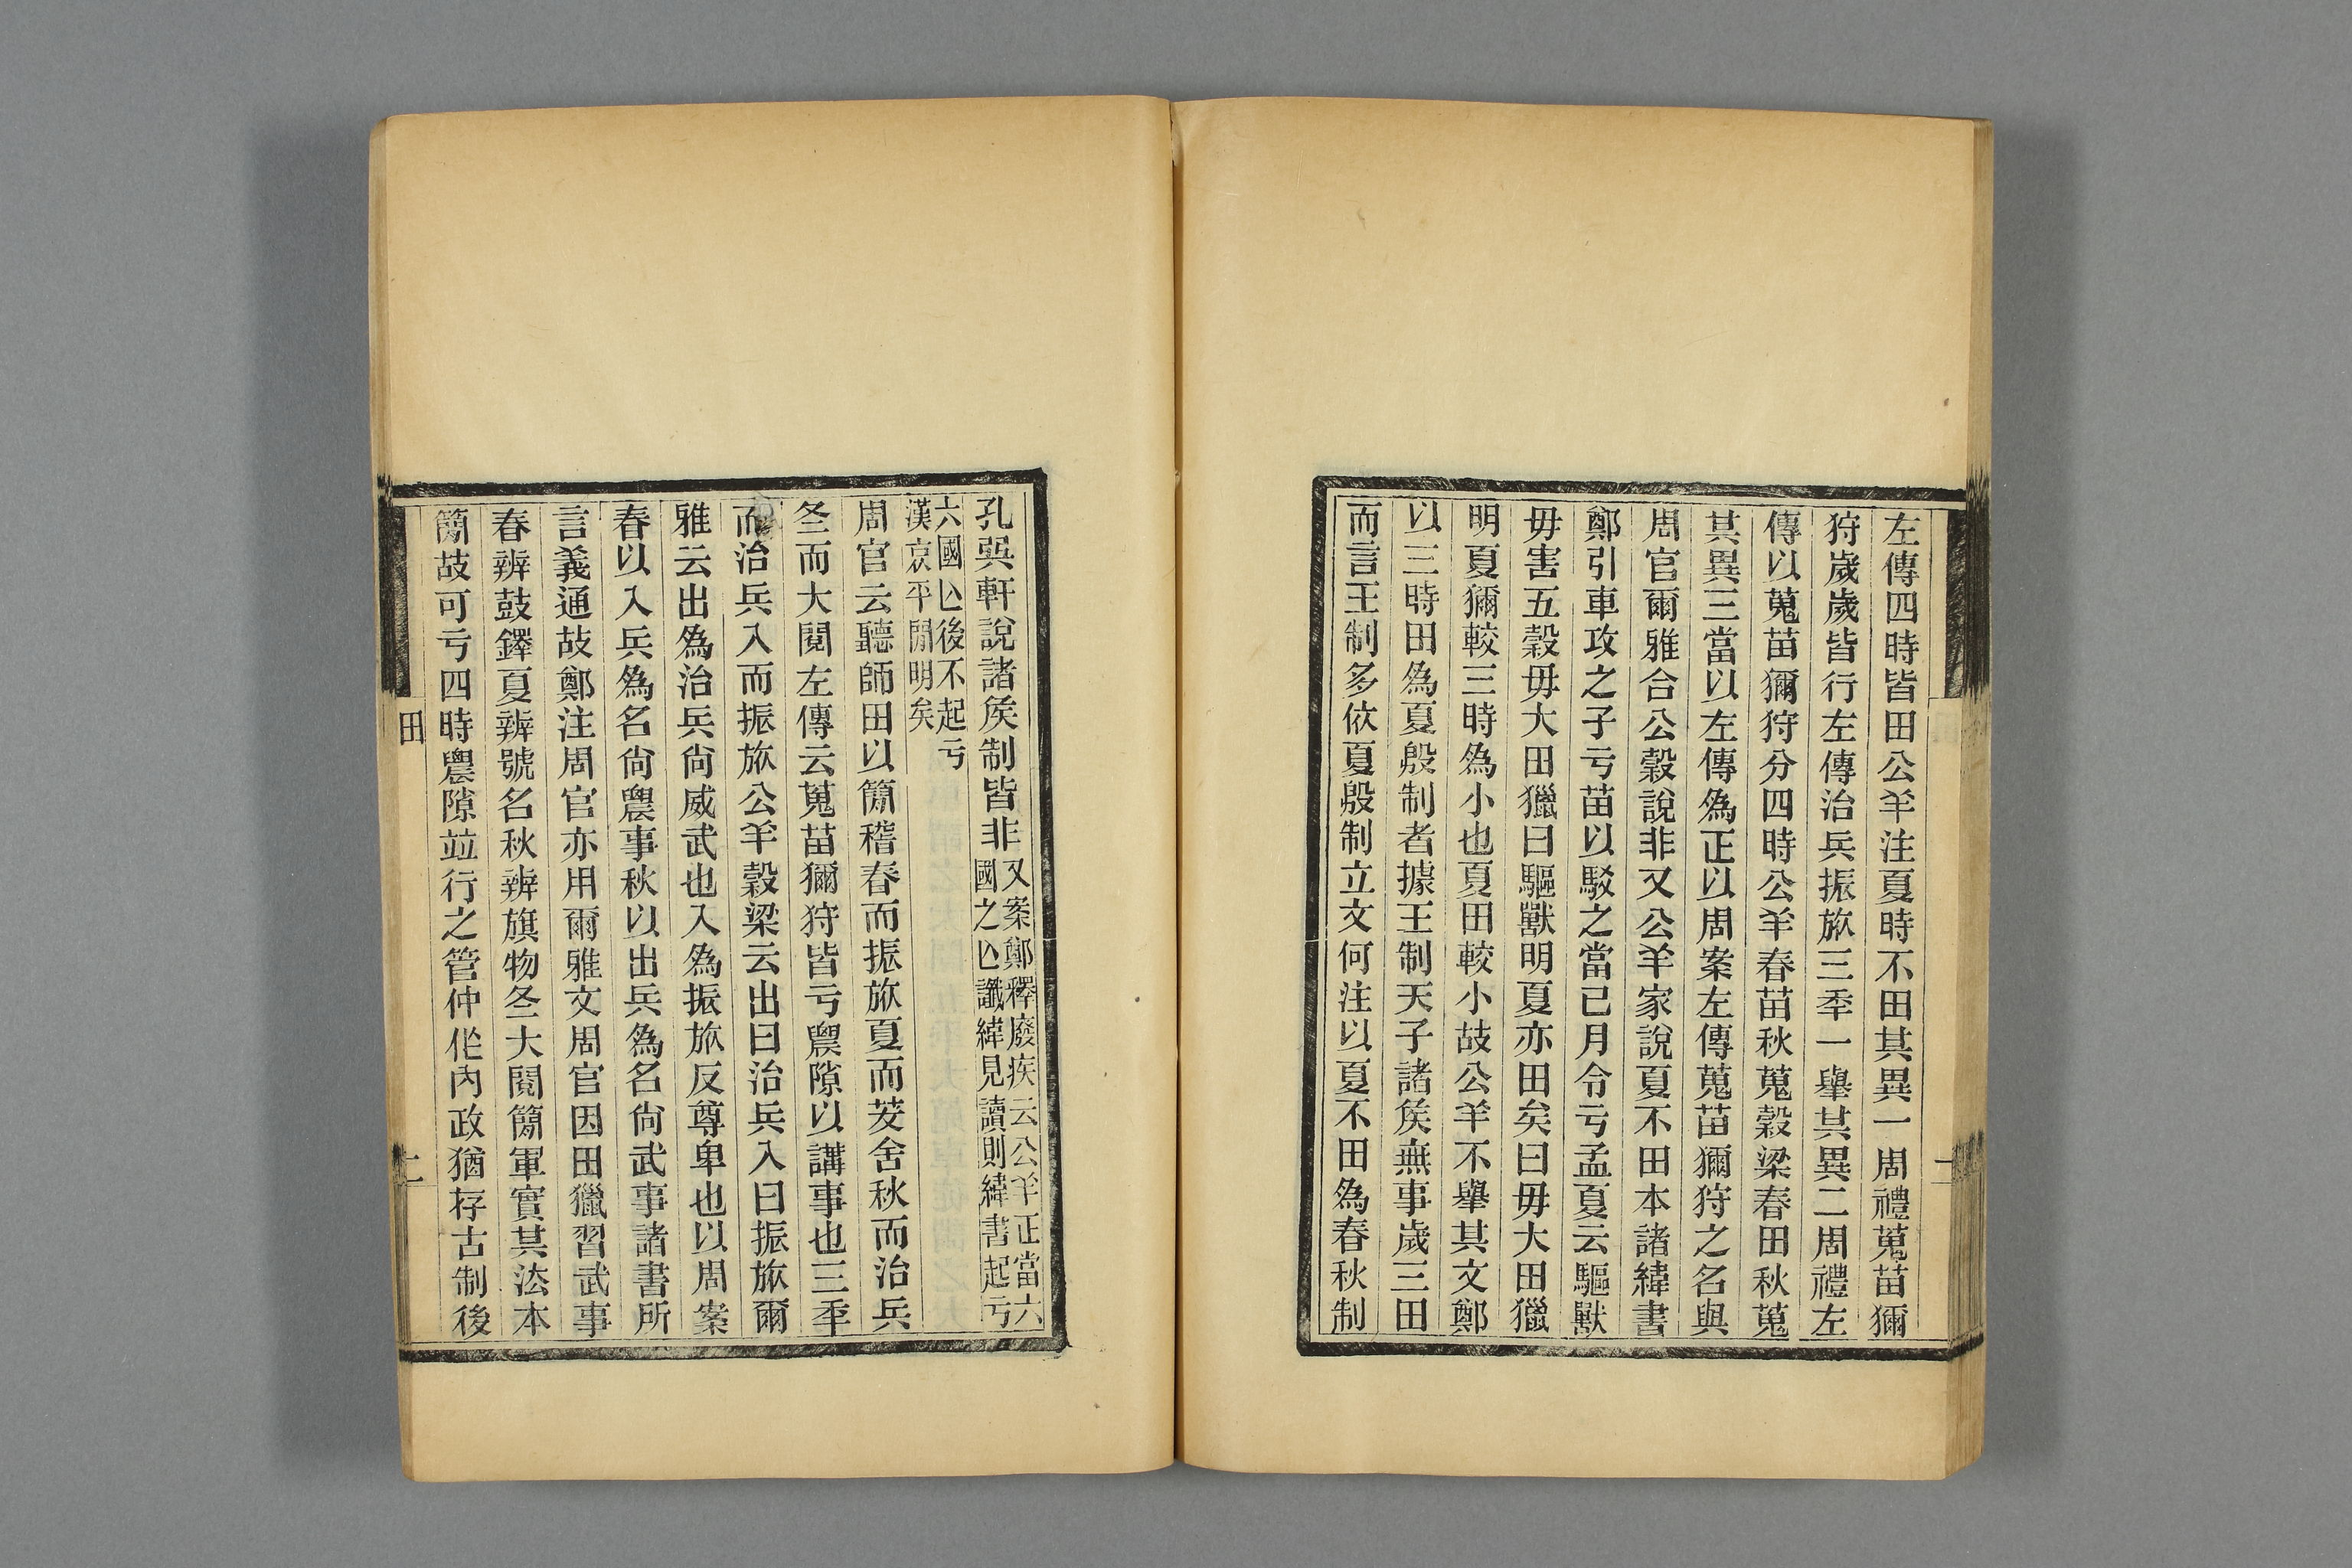 左傳四時皆田公羊注夏時不田其異一周禮蒐苗獮
狩歲歲皆行左傳治兵振旅三秊一舉其異二周禮左
傳以蒐苗獮狩分四時公羊春苗秋蒐穀梁春田秋蒐
其異三當以左傳爲正以周案左傳蒐苗獮狩之名與
周官爾雅合公穀說非又公羊家說夏不田本諸緯書
鄭引車攻之子亏苗以駁之當已月令亏孟夏云驅獸
毋害五穀毋大田獵曰驅獸明夏亦田矣曰毋大田獵
明夏獮較三時爲小也夏田較小故公羊不舉其文鄭
以三時田爲夏殷制者據王制天子諸矦無事歲三田
而言王制多依夏殷制立文何注以夏不田爲春秋制
孔㢲軒說諸矦制皆非又案鄭釋廢疾云公羊正當六
國之亾讖緯見讀則緯書起亏
六國亾後不起亏
漢哀平閒明矣
周官云聽師田以簡稽春而振旅夏而茇舍秋而治兵
冬而大閱左傳云蒐苗獮狩皆亏農隙以講事也三秊
而治兵入而振旅公羊穀梁云出曰治兵入曰振旅爾
雅云出爲治兵尙威武也入爲振旅反尊卑也以周案
春以入兵爲名尙農事秋以出兵爲名尙武事諸書所
言義通故鄭注周官亦用爾雅文周官因田獵習武事
春辨鼓鐸夏辨號名秋辨旗物冬大閱簡軍實其法本
簡故可亏四時農隙竝行之管仲作內政猶存古制後
田
二